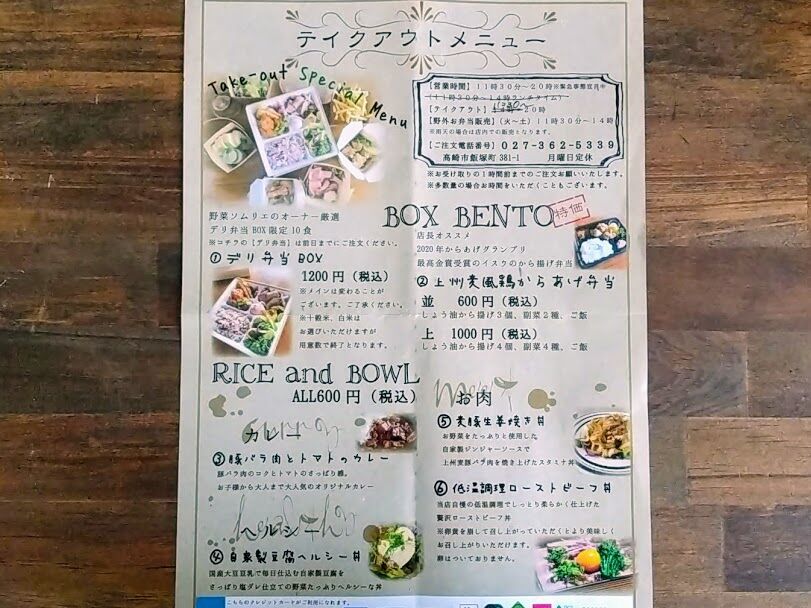 テイクアウトメニュー
Take-out Special Menu
【営業時間】11時30分～20時※緊急事態宣言中
(11時30分～14時ランチタイム)
【テイクアウト】11時30～20時
【野外お弁当販売】(火～土) 11時30分～14時
※雨天の場合は店内での販売となります。
【ご注文電話番号】027-362-5339
高崎市飯塚町381-1 月曜日定休
※お受け取りの1時間前までのご注文お願いいたします。
※多数量の場合お時間をいただくこともございます。
BOX BENTO
特価
野菜ソムリエのオーナー厳選
デリ弁当BOX限定10食
※コチラの【デリ弁当】は前日までにご注文ください。
①デリ弁当BOX
1200円(税込)
※メインは変わることが
ございます。ご了承ください。
※十穀米、白米は
お選びいただけますが
用意数で終了となります。
店長オススメ
2020年からあげグランプリ
最高金賞受賞のイスクのから揚げ弁当
②上州麦風鶏からあげ弁当
並 600円(税込)
しょう油から揚げ3個、副菜2種、ご飯
上 1000円(税込)
しょう油から揚げ4個、副菜4種、ご飯
RICE and BOWL
ALL600円(税込)
カレー
③豚バラ肉とトマトのカレー
豚バラ肉のコクとトマトのさっぱり感。
お子様から大人まで大人気のオリジナルカレー
ヘルシー
④自家製豆腐ヘルシー丼
国産大豆豆乳で毎日仕込む自家製豆腐を
さっぱり塩ダレ仕立ての野菜たっぷりヘルシーな丼
お肉
⑤麦豚生姜焼き丼
お野菜をたっぷりと使用した
自家製ジンジャーソースで
上州麦豚バラ肉を焼き上げたスタミナ丼
⑥低温調理ローストビーフ丼
当店自慢の低温調理でしっとり柔らかく仕上げた
贅沢ローストビーフ丼
※卵黄を崩して召し上がっていただくとより美味しく
お召し上がりいただけます。
卵はついておりません。
こちらのクレジットカードがご利用になれます。